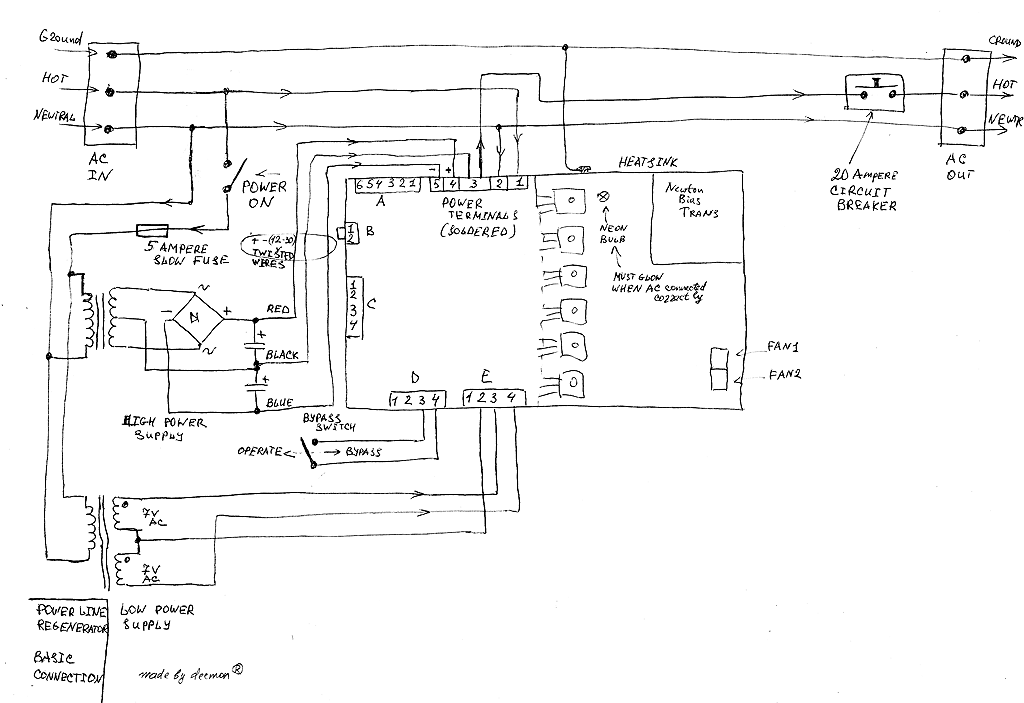 Ground
HOT
NEUTRAL
AC
IN
GROUND
HOT
AC
OUT
20 AMPERE
CIRCUIT
BREAKER
HEATSINK
POWER
ON
5 AMPERE
SLOW FUSE
+ -(12-30)V
TWISTED
WIRES
- +
6 5 4 3 2 1
A
5 4 3 2 1
POWER
TERMINALS
(SOLDERED)
1
2
B
1
2
3
4
C
Newton
Bias
TRANS
NEON
BULB
MUST GLOW
WHEN AC connected
correctly
FAN1
FAN2
~
- +
~
RED
+
BLACK
+
BLUE
HIGH POWER
SUPPLY
D
1 2 3 4
E
1 2 3 4
BYPASS
SWITCH
OPERATE
BYPASS
7V
AC
7V
AC
POWER LINE
REGENERATOR
LOW POWER
SUPPLY
BASIC
CONNECTION
made by deemon ®